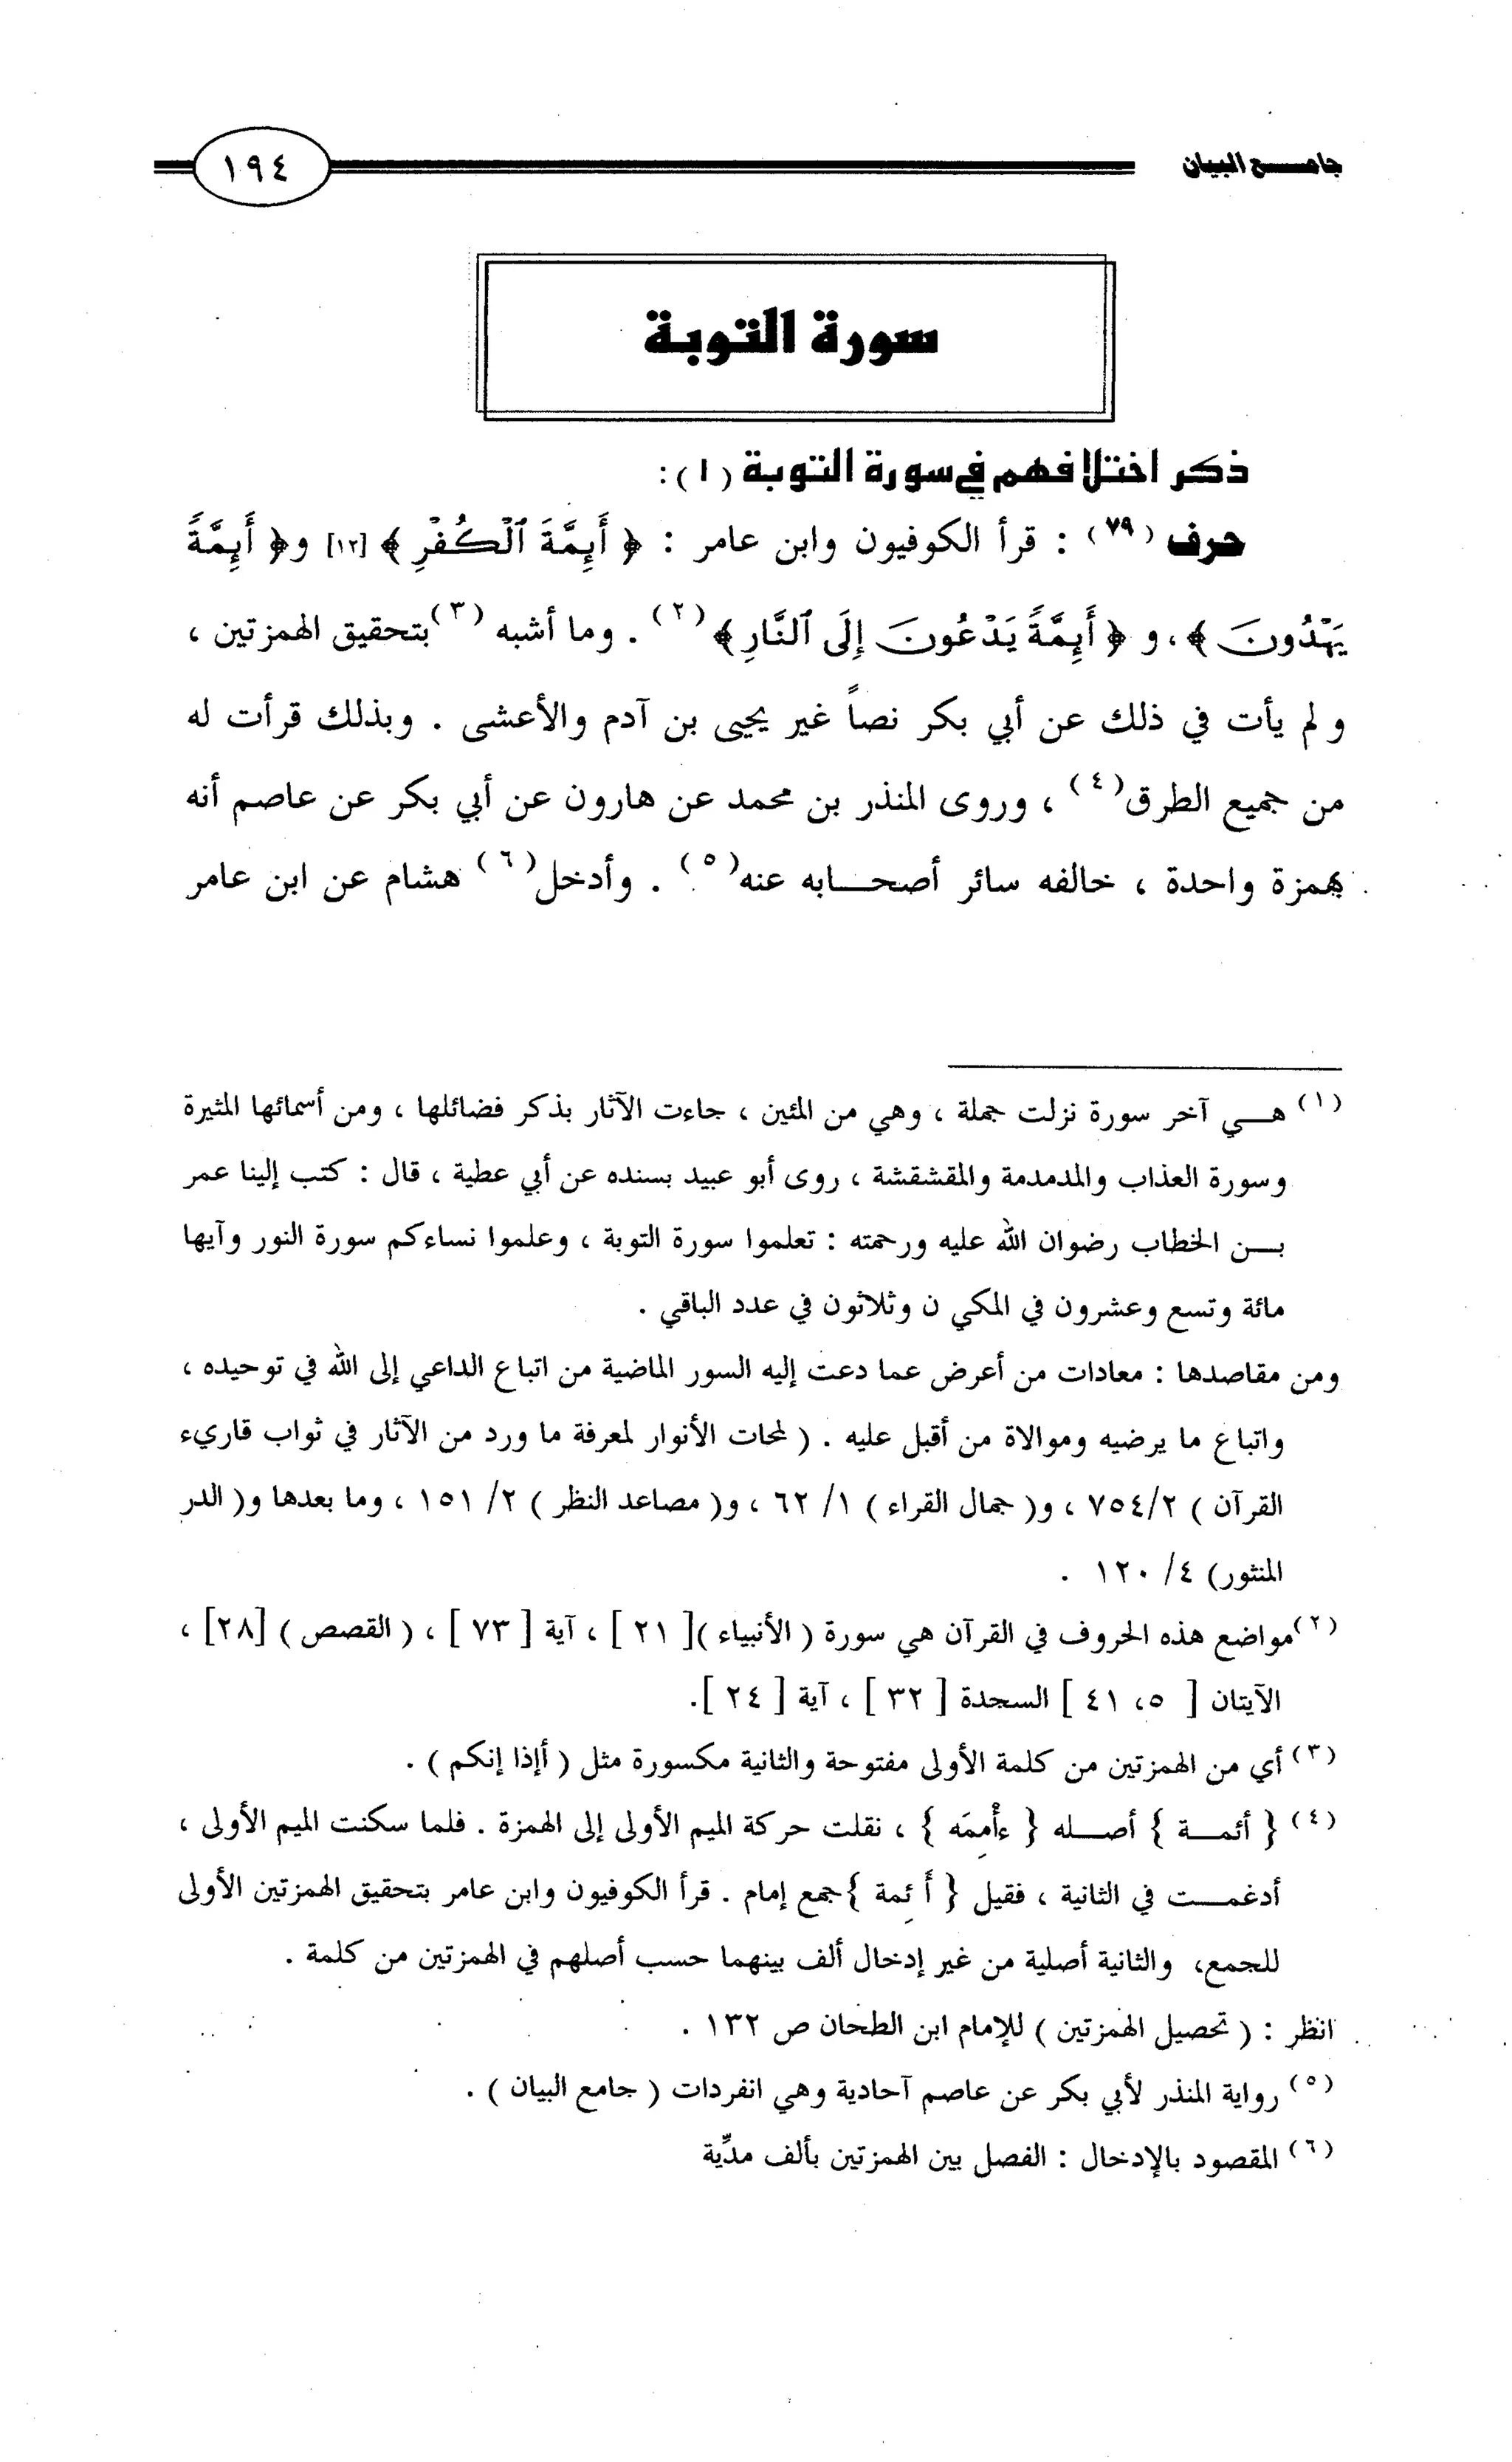 جامع البيان
١٩٤
سورة التوبة
ذكر اختلافهم في سورة التوبة (١):
حرف (٧٩) : قرأ الكوفيون وابن عامر : ﴿ أَيِمَّةَ ٱلْكُفْرِ ﴾ [١٢] و﴿ أَيِمَّةً
يَهْدُونَ ﴾، و ﴿ أَيِمَّةً يَدْعُونَ إِلَى ٱلنَّارِ﴾ (٢) . وما أشبه (٣)بتحقيق الهمزتين ،
و لم يأت في ذلك عن أبي بكر نصاً غير يحيى بن آدم والأعشى . وبذلك قرأت له
من جميع الطرق(٤) ، وروى المنذر بن محمد عن هارون عن أبي بكر عن عاصم أنه
بهمزة واحدة ، خالفه سائر أصحابه عنه(٥) . وأدخل(٦) هشام عن ابن عامر
(١) هي آخر سورة نزلت جملة ، وهي من المئين ، جاءت الآثار بذكر فضائلها ، ومن أسمائها المثيرة
وسورة العذاب والمدمدمة والمقشقشة ، روى أبو عبيد بسنده عن أبي عطية ، قال : كتب إلينا عمر
بن الخطاب رضوان الله عليه ورحمته : تعلموا سورة التوبة ، وعلموا نساءكم سورة النور وآيها
مائة وتسع وعشرون في المكي ن وثلاثون في عدد الباقي .
ومن مقاصدها : معادات من أعرض عما دعت إليه السور الماضية من اتباع الداعي إلى الله في توحيده ،
واتباع ما يرضيه وموالاة من أقبل عليه . ( لمحات الأنوار لمعرفة ما ورد من الآثار في ثواب قاريء
القرآن ) ٧٥٤/٢ ، و( جمال القراء ) ١/ ٦٢ ، و( مصاعد النظر ) ٢/ ١٥١ ، وما بعدها و( الدر
المنثور) ٤/ ١٢٠ .
(٢)مواضع هذه الحروف في القرآن هي سورة ( الأنبياء )[ ٢١ ] ، آية [ ٧٣ ] ، ( القصص ) [٢٨] ،
الآيتان [ ٥، ٤١ ] السجدة [ ٣٢ ] ، آية [ ٢٤ ].
(٣) أي من الهمزتين من كلمة الأولى مفتوحة والثانية مكسورة مثل ( أإذا إنكم ) .
(٤) { أئمة } أصله { ءأْمِمَه } ، نقلت حركة الميم الأولى إلى الهمزة . فلما سكنت الميم الأولى ،
أدغمت في الثانية ، فقيل { أَئِمة }جمع إمام . قرأ الكوفيون وابن عامر بتحقيق الهمزتين الأولى
للجمع، والثانية أصلية من غير إدخال ألف بينهما حسب أصلهم في الهمزتين من كلمة .
انظر : ( تحصيل الهمزتين ) للإمام ابن الطحان ص ١٣٢ .
(٥) رواية المنذر لأبي بكر عن عاصم آحادية وهي انفردات ( جامع البيان ) .
(٦) المقصود بالإدخال : الفصل بين الهمزتين بألف مدِّية